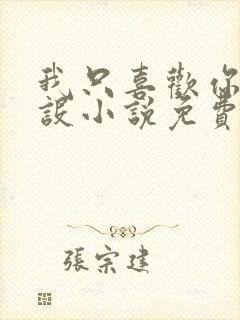 我只喜歡你
設小說免費
張宗建